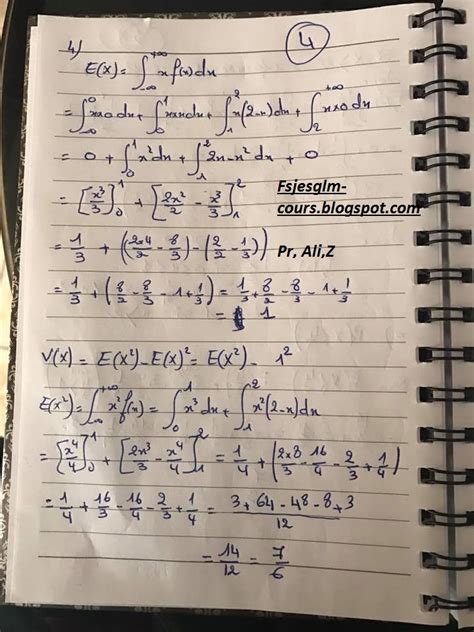 4
4)
E(X) = ∫_{-∞}^{+∞} x f(x) dx
= ∫_{-∞}^{0} x×0 dx + ∫_{0}^{1} x×x dx + ∫_{1}^{2} x(2-x) dx + ∫_{2}^{+∞} x×0 dx
= 0 + ∫_{0}^{1} x² dx + ∫_{1}^{2} 2x - x² dx + 0
= [x³/3]_{0}^{1} + [2x²/2 - x³/3]_{1}^{2}
Fsjesglm-
cours.blogspot.com
= 1/3 + ((2×4/2 - 8/3) - (2/2 - 1/3))
Pr, Ali,Z
= 1/3 + (8/2 - 8/3 - 1 + 1/3) = 1/3 + 8/2 - 8/3 - 1 + 1/3
= 1
V(X) = E(X²) - E(X)² = E(X²) - 1²
E(X²) = ∫_{-∞}^{+∞} x² f(x) = ∫_{0}^{1} x³ dx + ∫_{1}^{2} x²(2-x) dx
= [x⁴/4]_{0}^{1} + [2x³/3 - x⁴/4]_{1}^{2} = 1/4 + (2×8/3 - 16/4 - 2/3 + 1/4)
= 1/4 + 16/3 - 16/4 - 2/3 + 1/4 = (3 + 64 - 48 - 8 + 3)/12
= 14/12 = 7/6